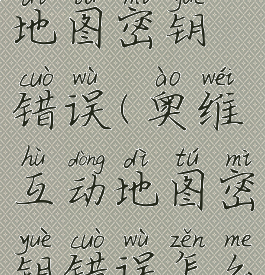 地图密钥
cuò wù ào wéi
错误(奥维
hù dòng dì tú mì
互动地图密
yuè cuò wù zěn me
钥错误怎么